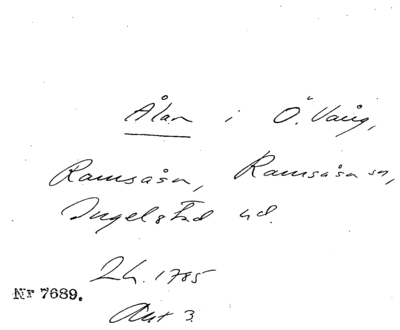 Ålan i Ö. Vång,
Ramsåsa, Ramsåsa sn,
Ingelstad hd.
Lh. 1785
Nr 7689.
Akt 3